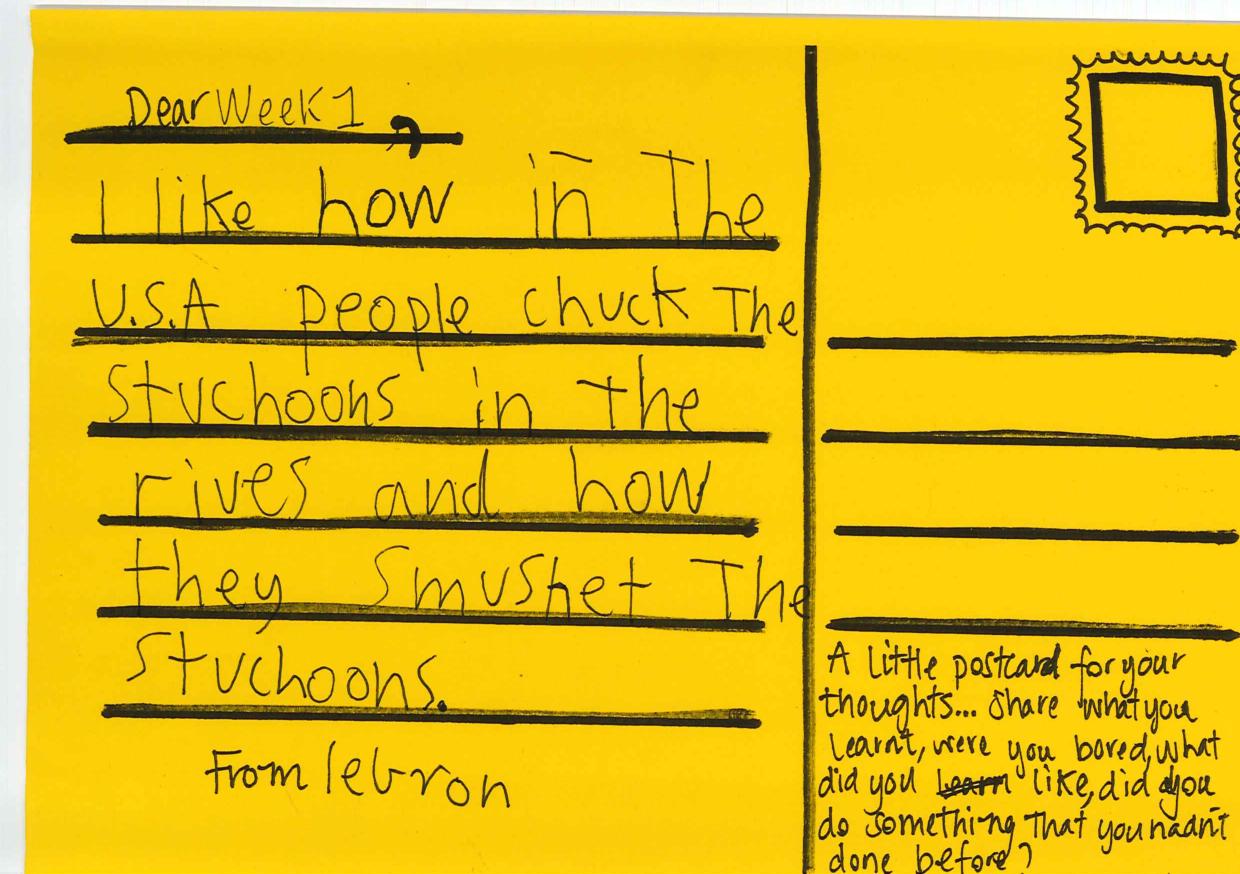 Dear Week 1,
I like how in The
U.S.A people chuck The
Stuchoons in the
rives and how
they Smushet The
Stuchoons.
From lebron
A little postcard for your
thoughts... Share what you
learnt, were you bored, what
did you learn like, did you
do something that you hadn't
done before?